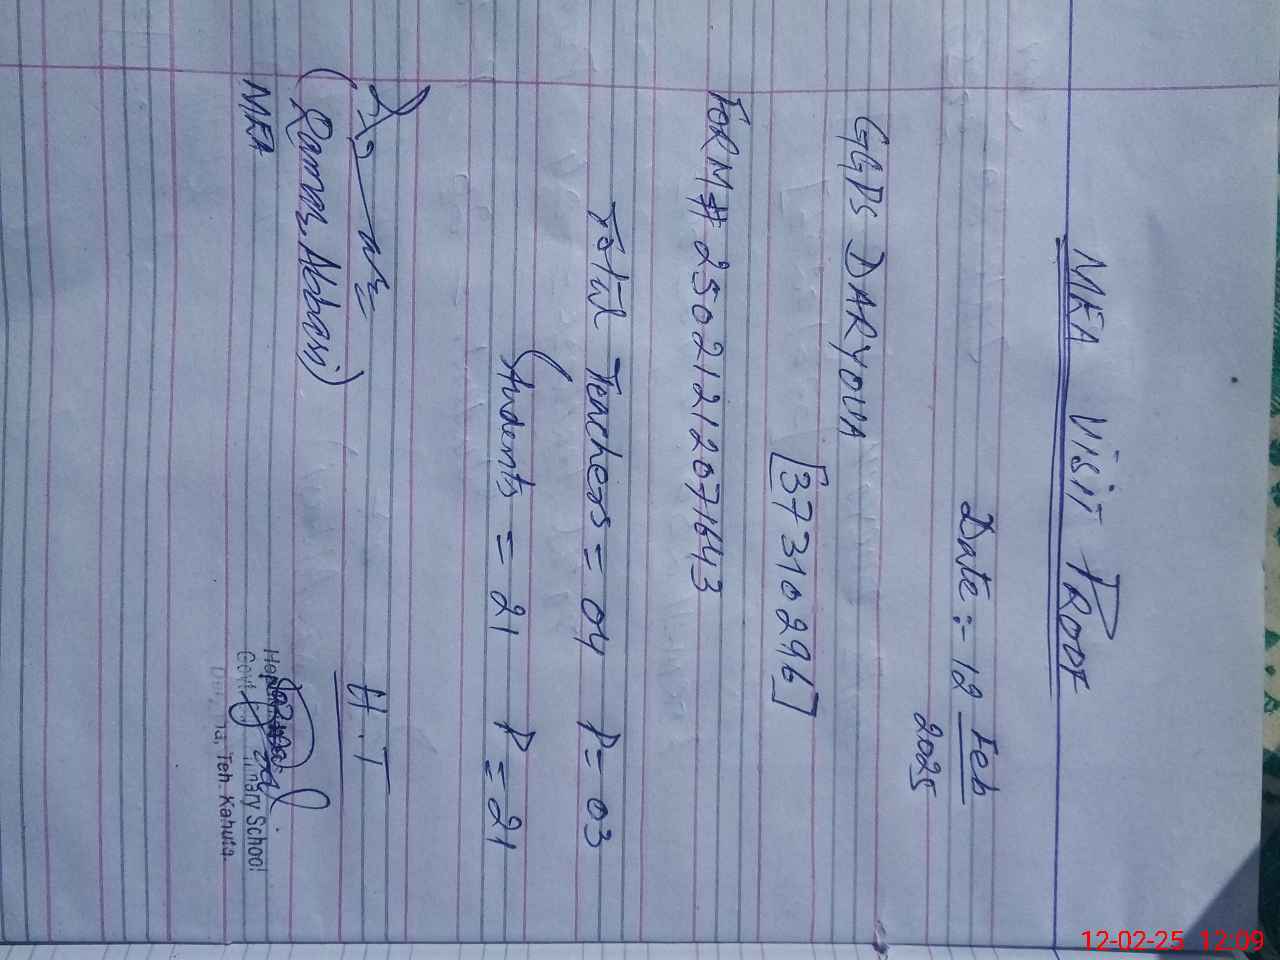 MEA Visit Proof
Date :- 12 Feb
2025
GGPS DARYOUA
[37310296]
FORM # 250212120771643
Total Teachers = 04 P = 03
Students = 21 P = 21
H.T
(Qamar Abbasi)
MEA
Primary School
Teh. Kahuta.
12-02-25 12:09